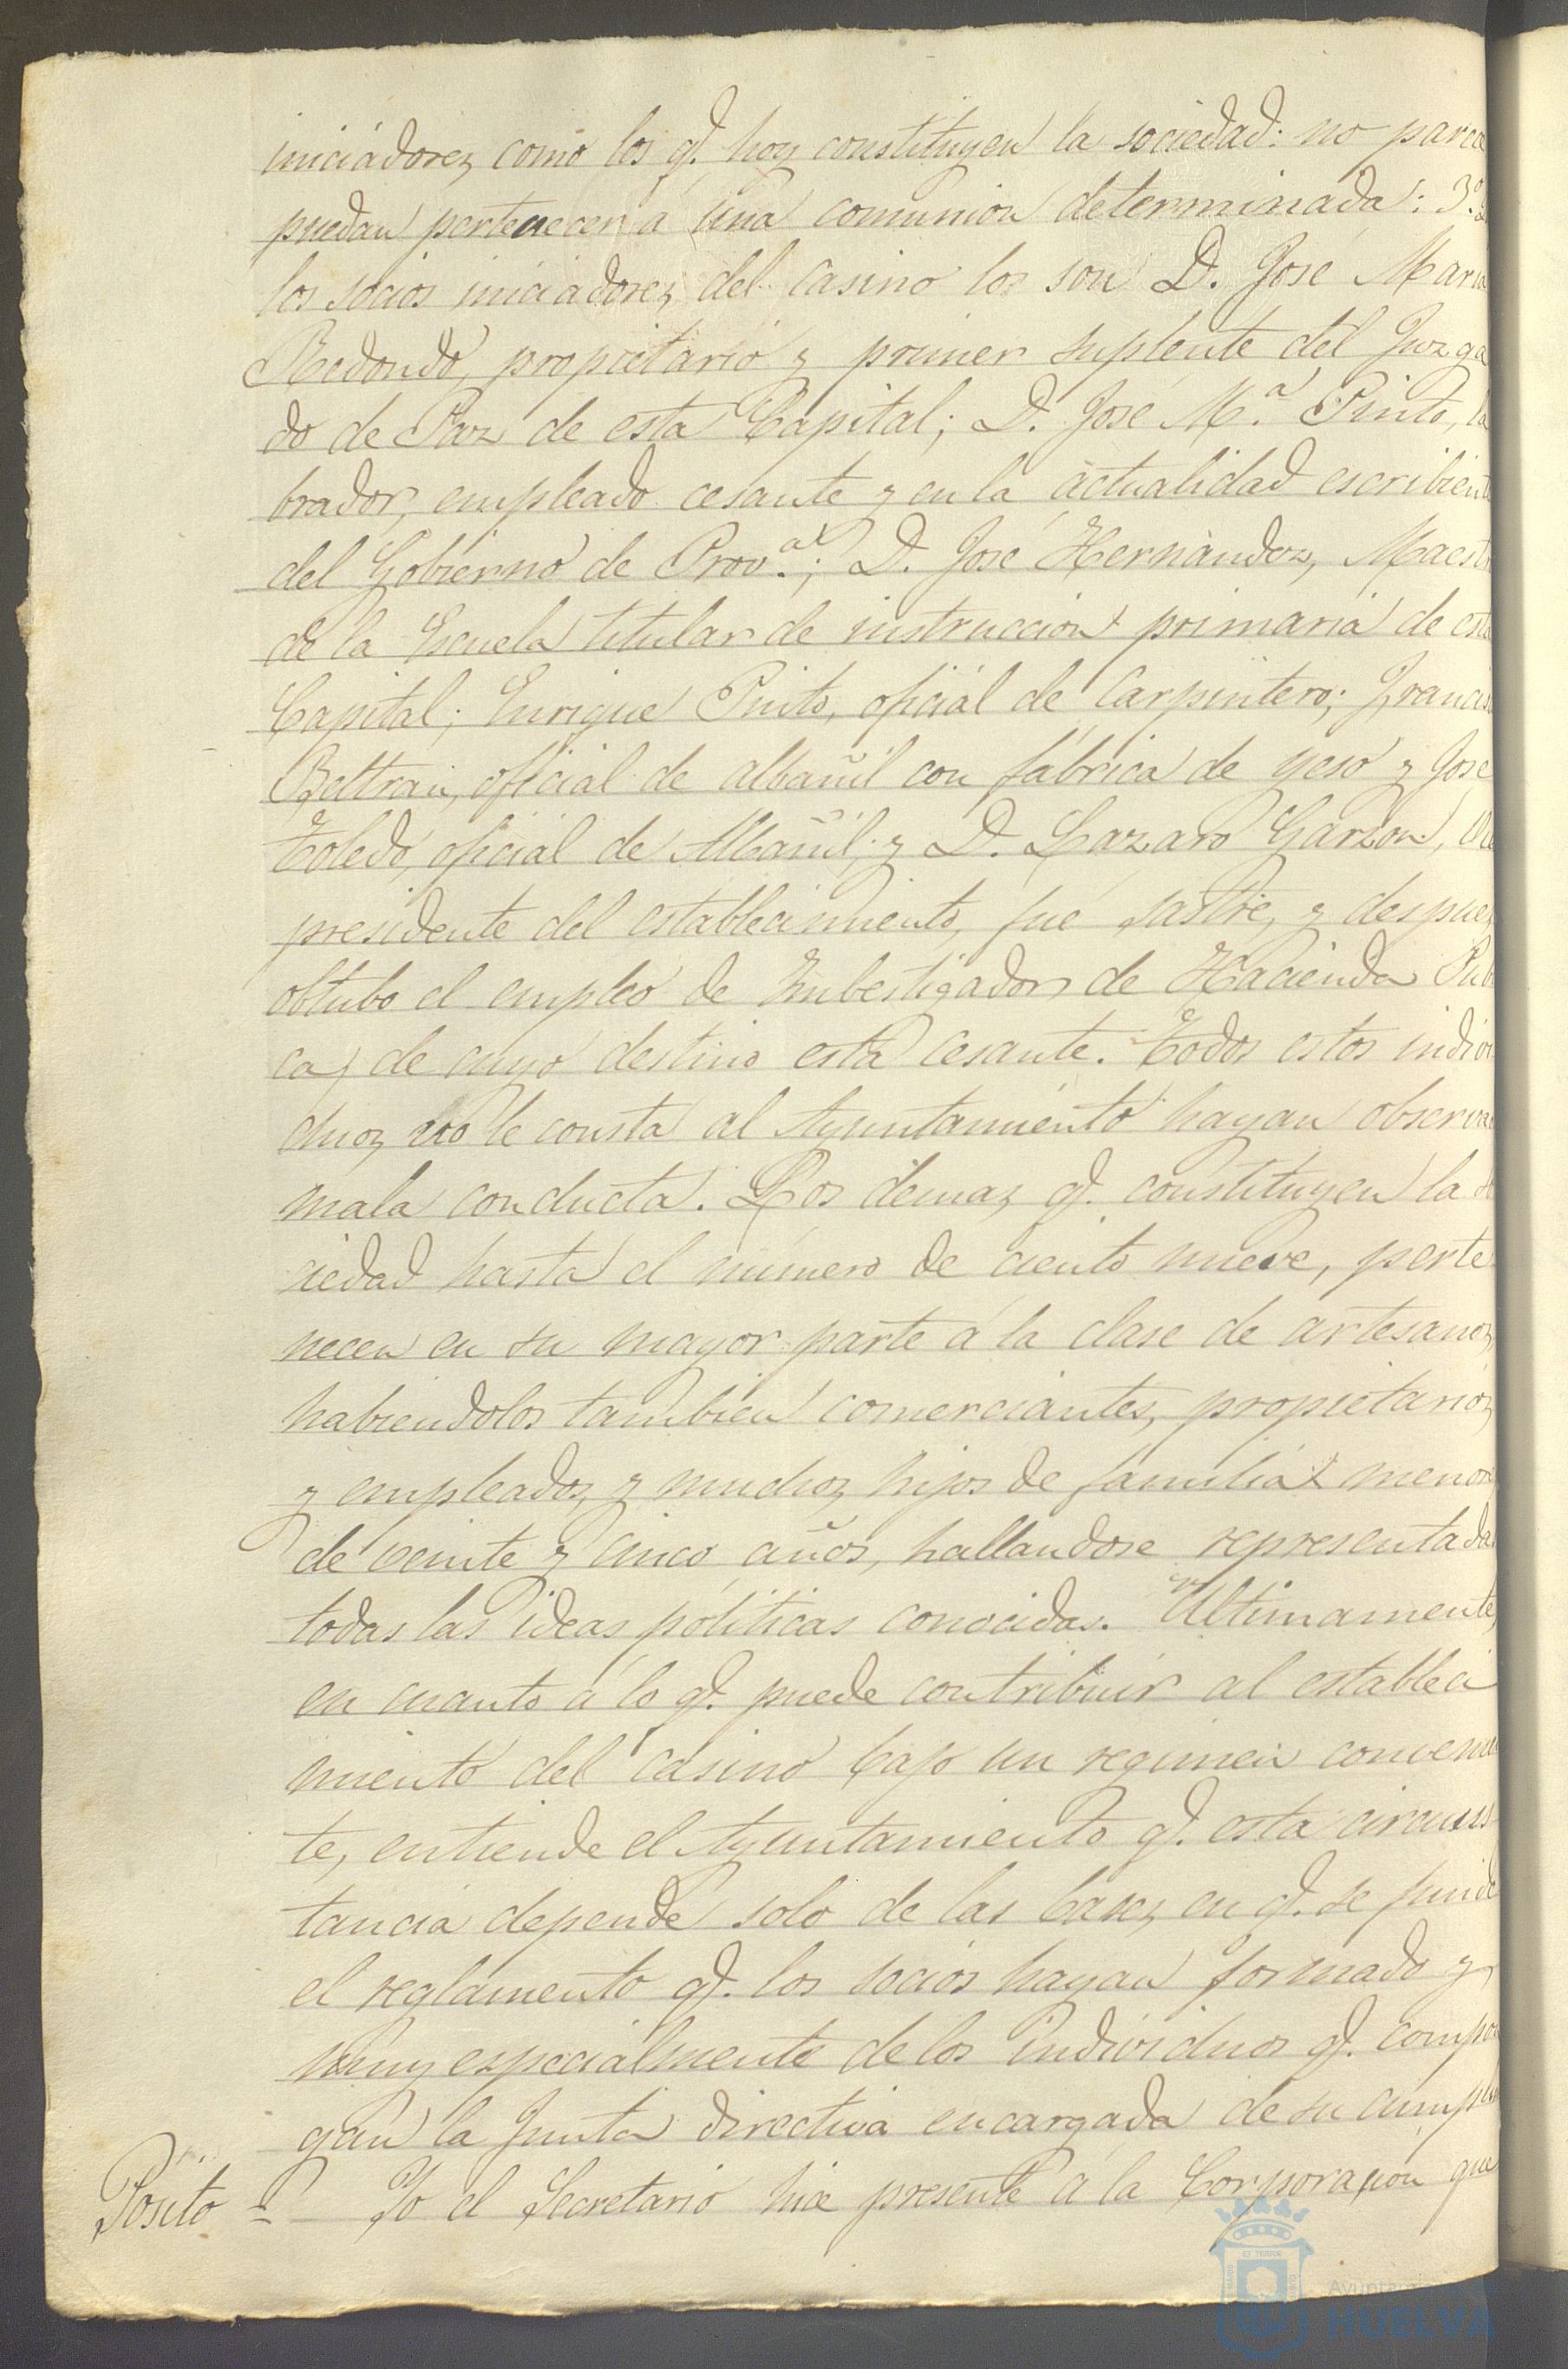 iniciadores como los q.e hoy constituyen la sociedad: no parece
puedan pertenecer á una comunion determinada: 3.º
los socios iniciadores del Casino los son D. José Maria
Redondo, propietario y primer suplente del Juzga
do de Paz de esta Capital; D. José M.ª Pinto, la
brador, empleado cesante y en la actualidad escribiente
del Gobierno de Prov.al; D. José Hernandez, Maestro
de la Escuela titular de instruccion primaria de esta
Capital; Enrique Pinto, oficial de Carpintero; Francisco
Beltran, oficial de albañil con fábrica de yeso y José
Toledo, oficial de Albañil; y D. Lazaro Garzon,
presidente del establecimiento, fué sastre, y despues
obtubo el empleo de Imbestigador de Hacienda Pub
ca, de cuyo destino está cesante. Todos estos indivi
duos no le consta al Ayuntamiento hayan observado
mala conducta. Los demas q.e constituyen la so
ciedad hasta el número de ciento nueve, perte
necen en su mayor parte á la clase de artesanos,
habiendolos tambien comerciantes, propietarios
y empleados, y muchos hijos de familia menores
de veinte y cinco años, hallandose representadas
todas las ideas políticas conocidas. Ultimamente,
en cuanto á lo q.e puede contribuir al estableci
miento del Casino bajo un regimen convenien
te, entiende el Ayuntamiento q.e esta circuns
tancia depende solo de las bases en q.e se funde
el reglamento q.e los socios hayan formado y
muy especialmente de los individuos q.e compon
gan la Junta directiva encargada de su cumpl
Posito = Yo el Secretario hice presente á la Corporacion que
Ayuntamiento
HUELVA